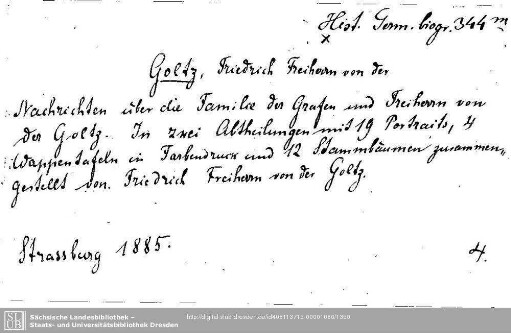 Hist. Germ. biogr. 344 m
x
Goltz, Friedrich Freiherrn von der
Nachrichten über die Familie der Grafen und Freiherrn von
der Goltz. In zwei Abtheilungen mit 19 Portraits, 4
Wappentafeln in Farbendruck und 12 Stammbäumen zusammen-
gestellt von Friedrich Freiherrn von der Goltz.
Strassburg 1885.
4.
SLUB
Sächsische Landesbibliothek –
Staats- und Universitätsbibliothek Dresden